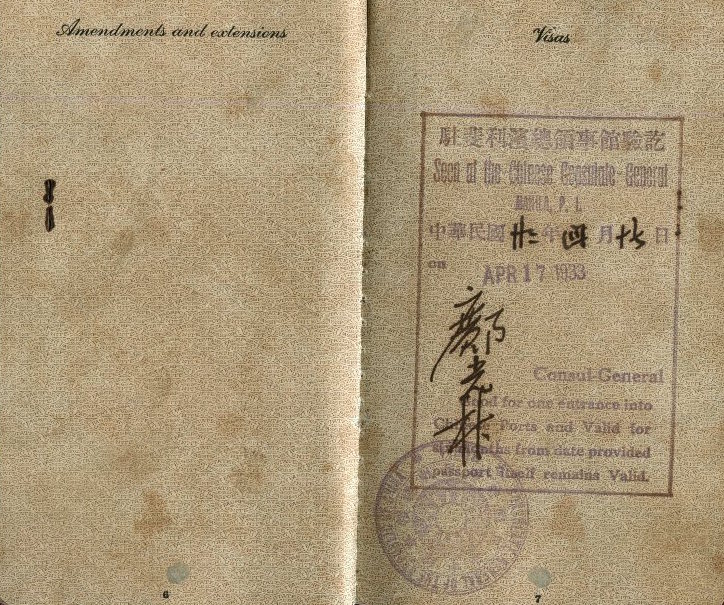 Amendments and extensions
6
Visas
駐斐利濱總領事館驗訖
Seen at the Chinese Consulate-General
MANILA, P. I.
中華民國廿二年四月十七日
on APR 17 1933
鄺光林
Consul-General
Good for one entrance into
Ports and Valid for
months from date provided
passport itself remains Valid.
7